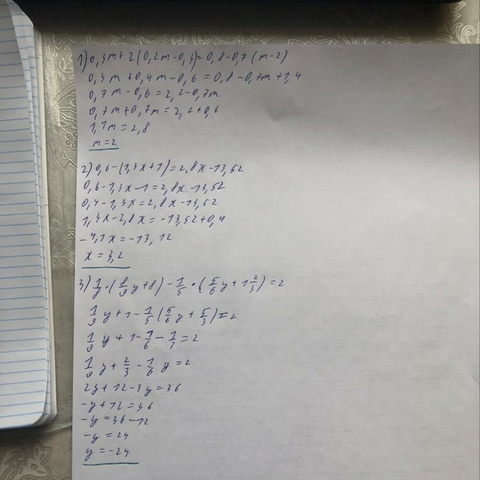 1) 0,3m+2(0,2m-0,3)=0,8-0,7(m-2)
0,3m+0,4m-0,6=0,8-0,7m+1,4
0,7m-0,6=2,2-0,7m
0,7m+0,7m=2,2+0,6
1,4m=2,8
m=2
2) 0,6-(1,3x+1)=2,8x-13,52
0,6-1,3x-1=2,8x-13,52
0,4-1,3x=2,8x-13,52
1,3x-2,8x=-13,52+0,4
-4,1x=-13,12
x=3,2
3) 1/8·(8/9y+8)-1/5·(5/6y+1 2/3)=2
1/9y+1-1/5(5/6y+5/3)=2
1/9y+1-1/6-1/3=2
1/9y+2/3-1/6y=2
2y+12-3y=36
-y+12=36
-y=36-12
-y=24
y=-24